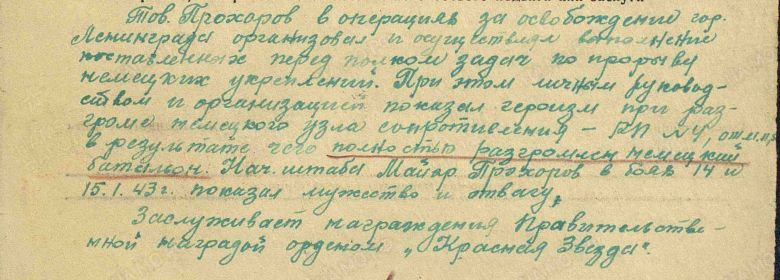 Тов. Прохоров в операциях за освобождение гор.
Ленинграда организовал и осуществлял выполнение
поставленных перед полком задач по прорыву
немецких укреплений. При этом личным руковод-
ством и организацией показал героизм при раз-
громе немецкого узла сопротивления – РП №4,
в результате чего полностью разгромлен немецкий
батальон. Нач. штаба Майор Прохоров в боях 14 и
15.1.43г. показал мужество и отвагу,
Заслуживает награждения Правительстве-
нной наградой орденом „Красная Звезда".